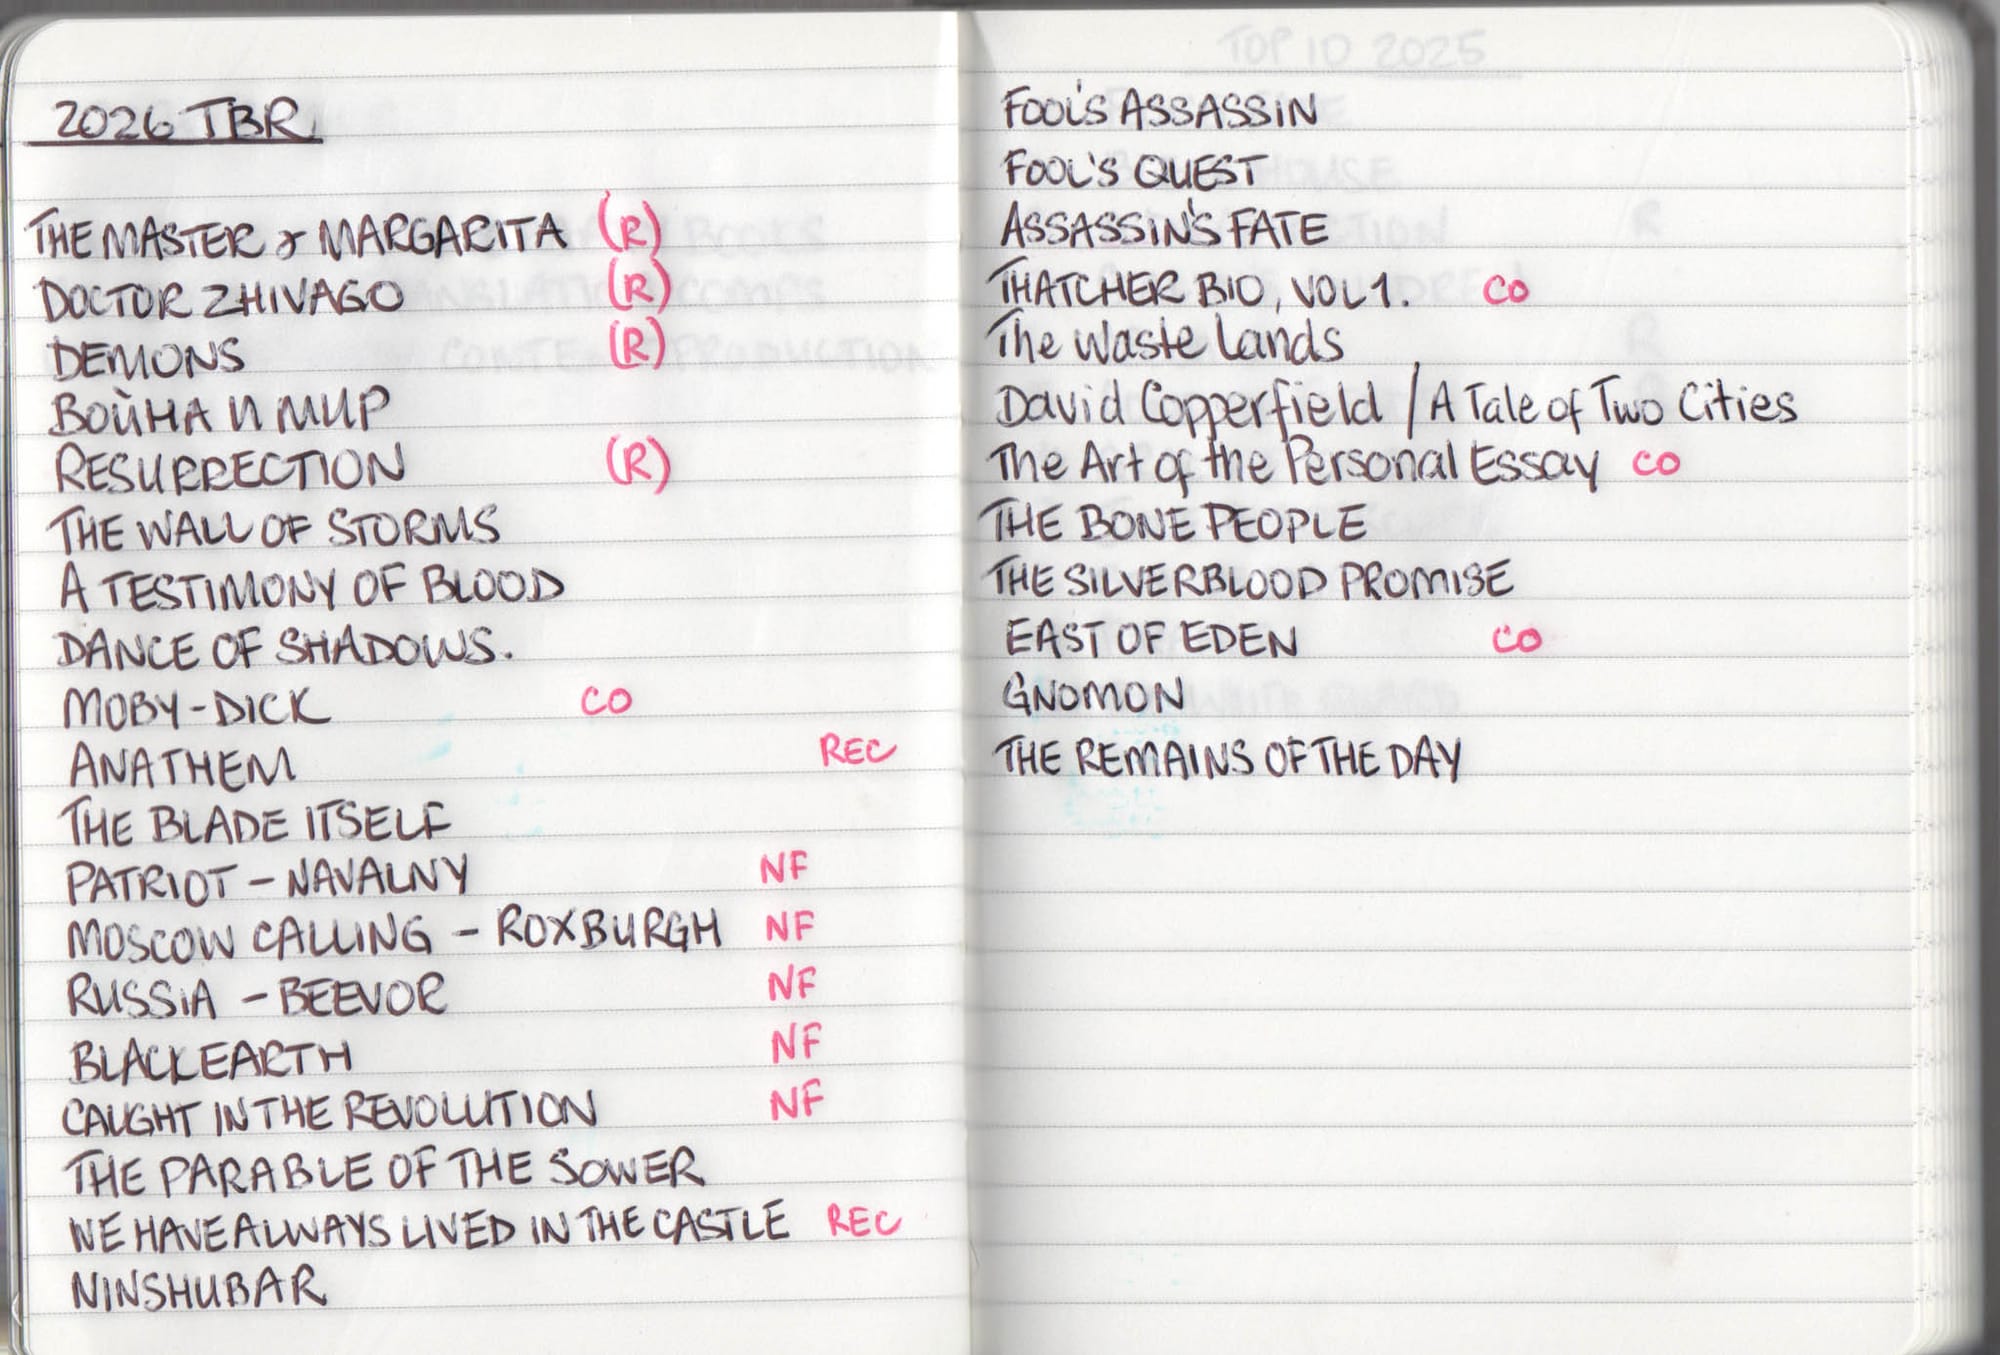 2026 TBR
THE MASTER & MARGARITA (R)
DOCTOR ZHIVAGO (R)
DEMONS (R)
ВОЙНА И МИР
RESURRECTION (R)
THE WALL OF STORMS
A TESTIMONY OF BLOOD
DANCE OF SHADOWS.
MOBY-DICK CO
ANATHEM REC
THE BLADE ITSELF
PATRIOT - NAVALNY NF
MOSCOW CALLING - ROXBURGH NF
RUSSIA - BEEVOR NF
BLACK EARTH NF
CAUGHT IN THE REVOLUTION NF
THE PARABLE OF THE SOWER
WE HAVE ALWAYS LIVED IN THE CASTLE REC
NINSHUBAR
TOP 10 2025
FOOL'S ASSASSIN
FOOL'S QUEST
ASSASSIN'S FATE
THATCHER BIO, VOL 1. CO
The Waste Lands
David Copperfield / A Tale of Two Cities
The Art of the Personal Essay CO
THE BONE PEOPLE
THE SILVERBLOOD PROMISE
EAST OF EDEN CO
GNOMON
THE REMAINS OF THE DAY